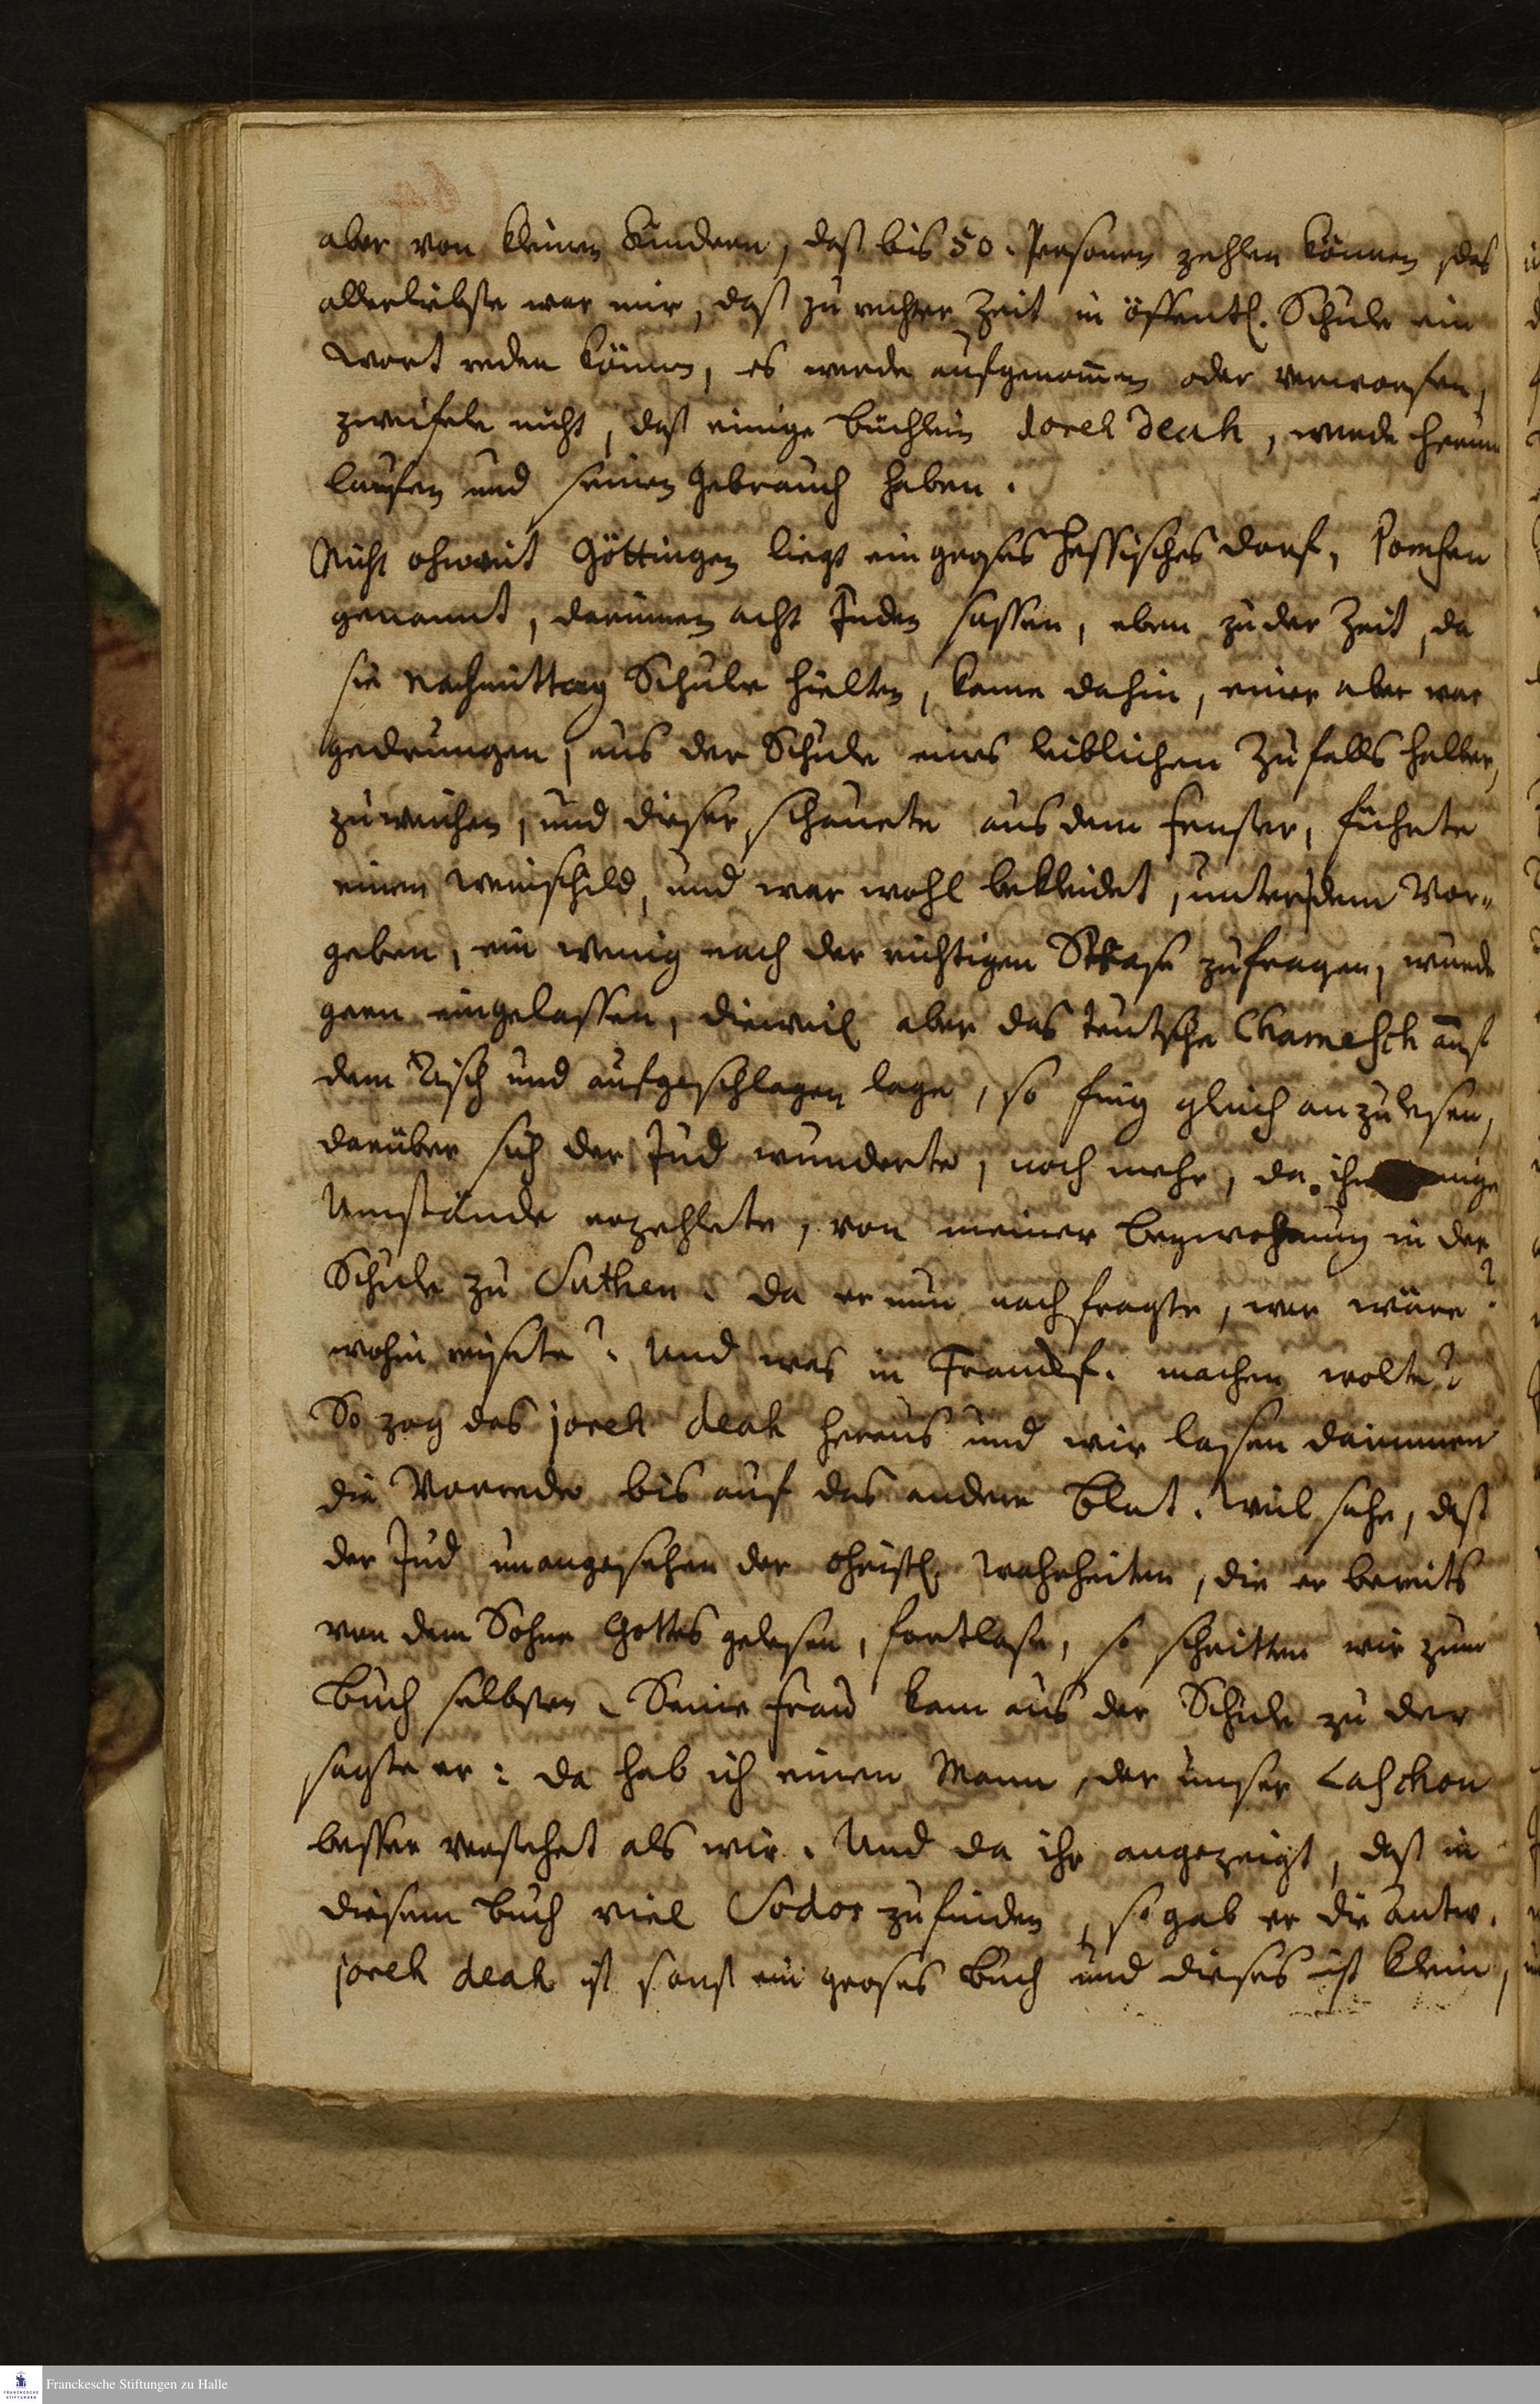 aber von kleinen Kindern, daß bis 50. Personen zehlen können, das
allerliebste war mir, daß zu rechter Zeit in öffentl. Schule ein
Wort reden können, es werde aufgenomen oder verworfen,
zweifele nicht, daß einige Büchlein Joreh Deah, werde herum
lauffen und seinen Gebrauch haben.
Nicht ohnweit Göttingen liegt ein groses Hessisches Dorf,
genannt, darinnen acht Juden sassen, eben zu der Zeit, da
sie Nachmittag Schule hielten, kame dahin, einer aber war
gedrungen, aus der Schule eines leiblichen Zufalls halber,
zuweichen, und dieser schauete aus dem Fenster, führte
einen Weinschild, und war wohl bekleidet, unter dem Vor-
geben, ein wenig nach der richtigen Strase zufragen, wurde
gern eingelassen, dieweil aber das teutsche Chamesch auf
dem Tisch und aufgeschlagen lage, so fing gleich an zulesen,
darüber sich der Jud wunderte, noch mehr, da ihm einige
Umstände erzehlete, von meiner Beywohnung in der
Schule zu Suthen. Da er nun nachfragte, wer wäre?
wohin reisete? Und was in Franckf. machen wolte?
So zog das joreh deah heraus und wir lasen darinnen
die Vorrede bis auf das andere Blat. Weil sahe, daß
der Jud unangesehen der christl. Wahrheiten, die er bereits
von dem Sohne Gottes gelesen, fortlase, so schritten wir zum
Buch selbsten. Seine Frau kam aus der Schule zu der
sagte er: da hab ich einen Mann, der unser Laschon
besser verstehet als wir. Und da ihr angezeigt, daß in
diesem Buch viel Sodos zufinden, so gab er die Antw.
joreh deah ist sonst ein groses Buch und dieses ist klein,
Franckesche Stiftungen zu Halle